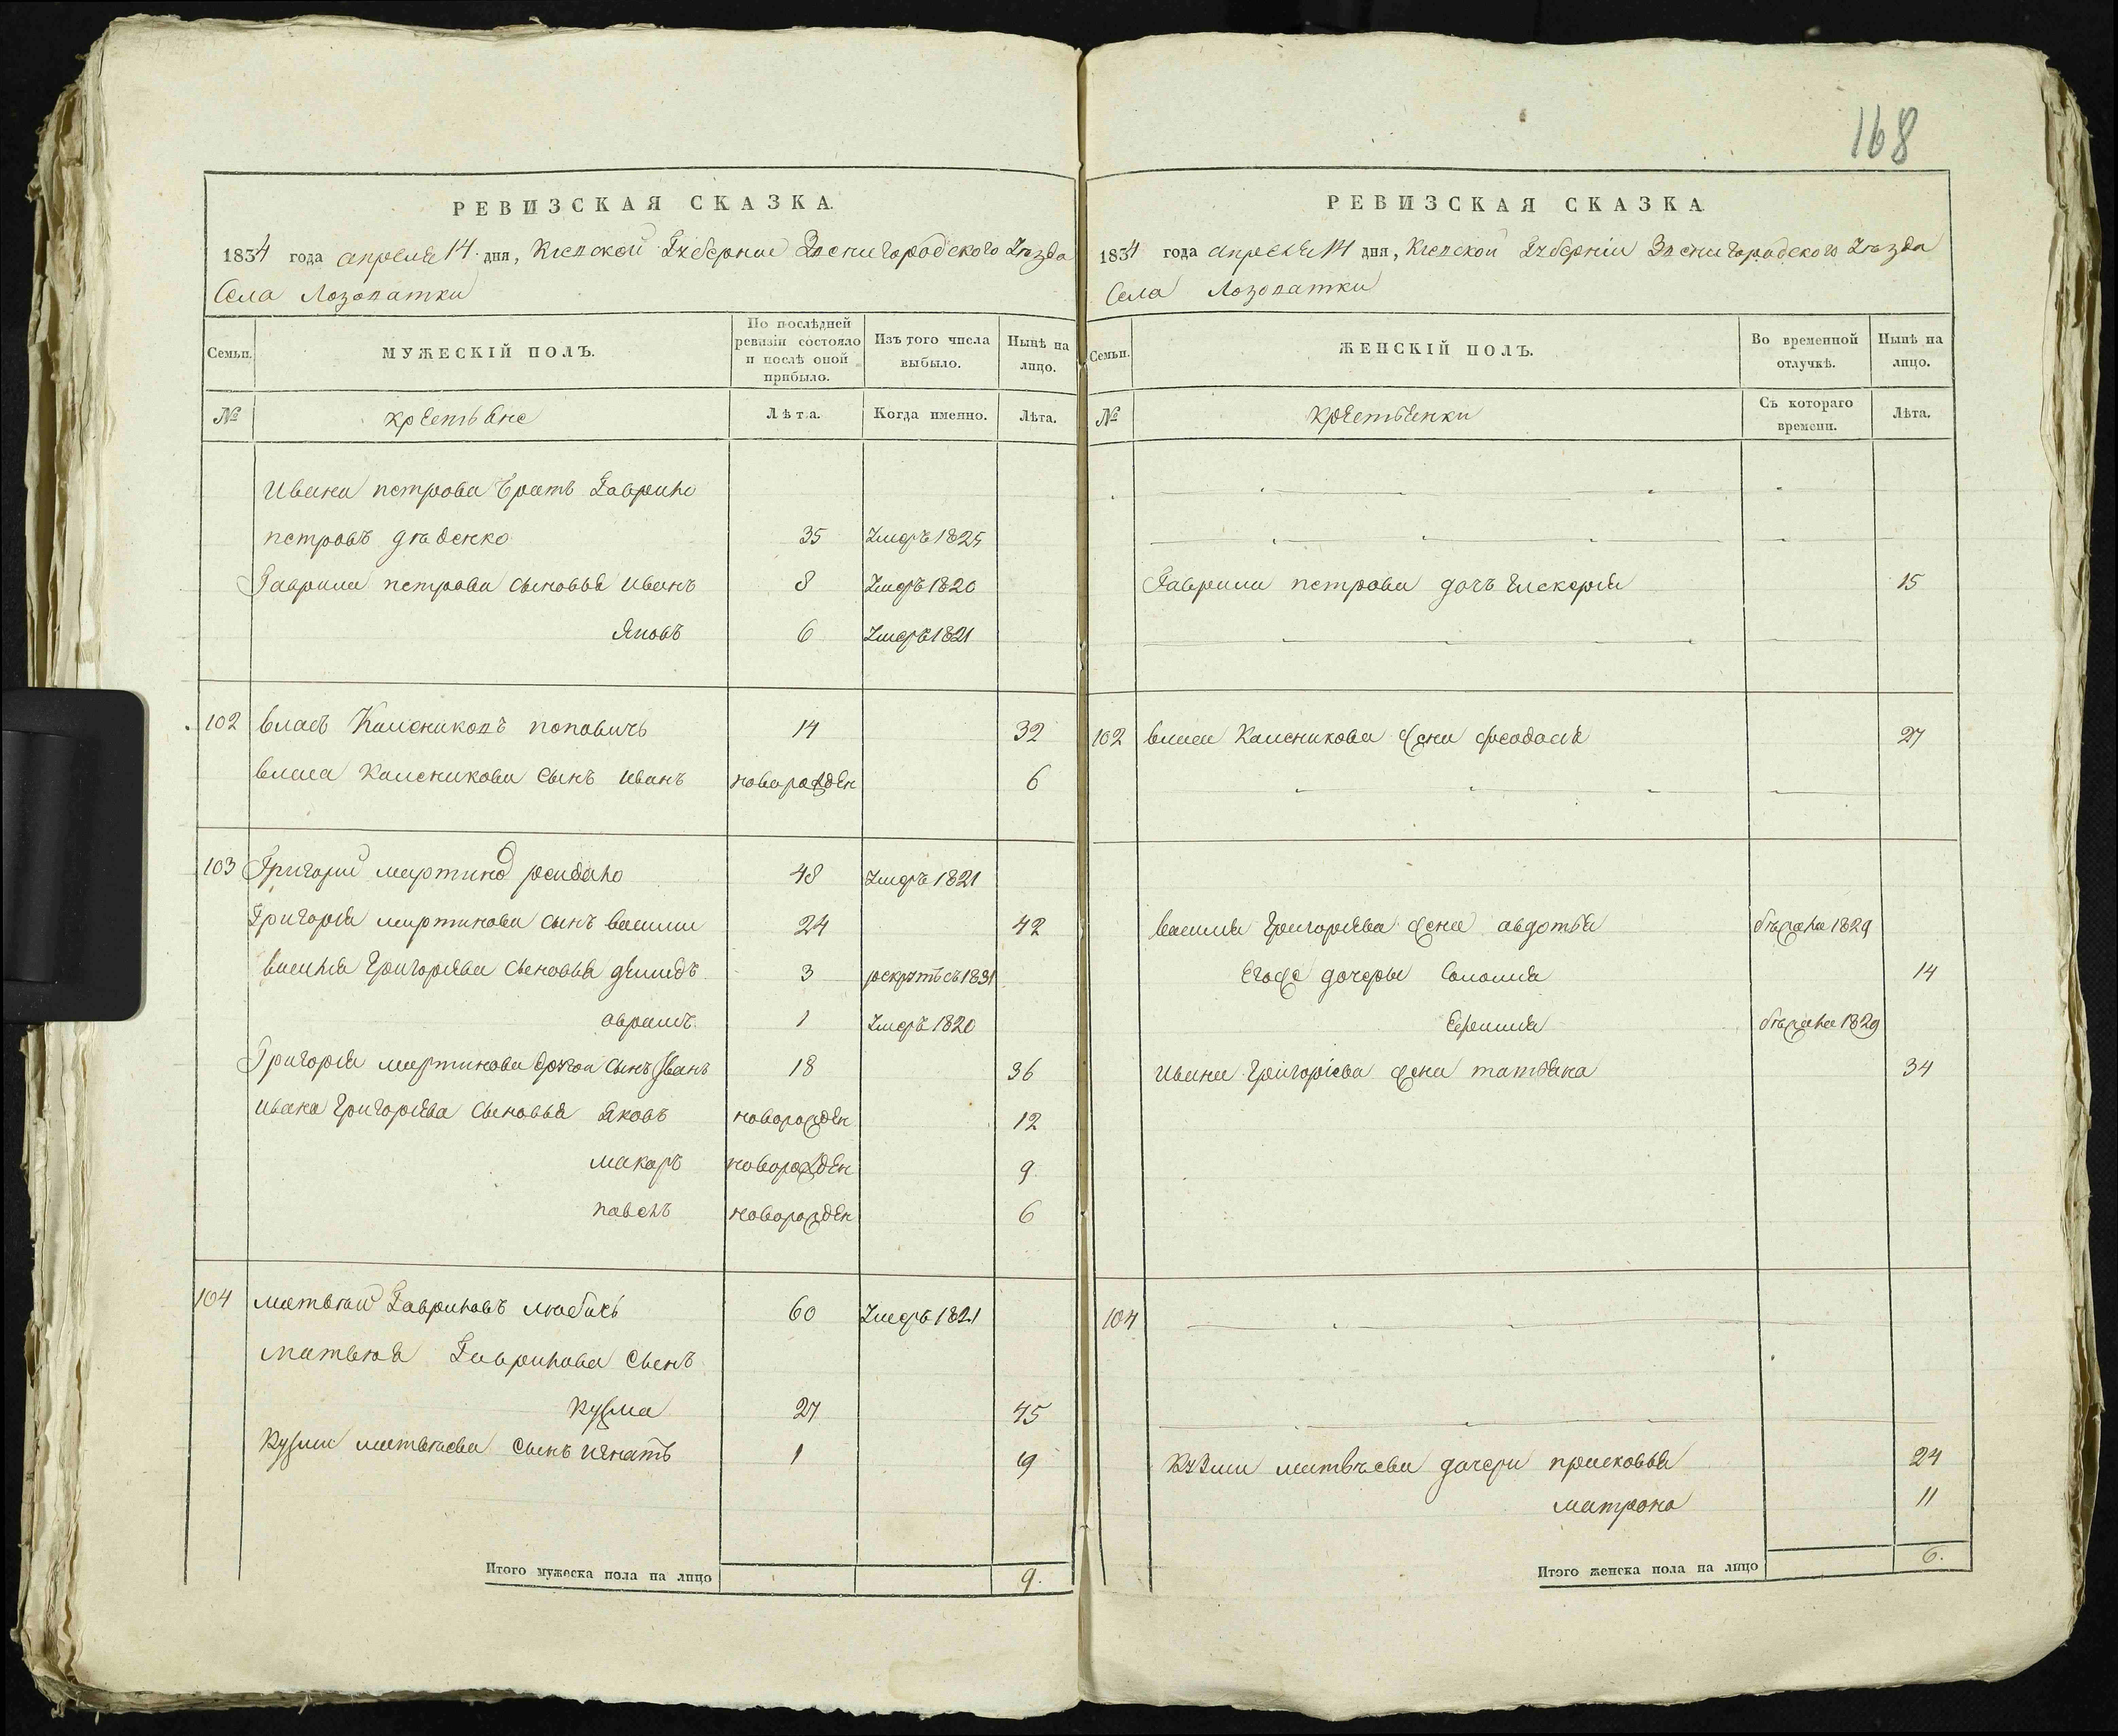 168
РЕВИЗСКАЯ СКАЗКА.
1834 года апреля 14 дня, Киевской Губернии Звенигородского Уезда
Села Лозоватки
Семьи. МУЖЕСКІЙ ПОЛЪ. По послѣдней ревизіи состояло и послѣ оной прибыло. Изъ того числа выбыло. Нынѣ на лицо.
№ крестьяне Лѣта. Когда именно. Лѣта.
Ивана петрова братъ Гаврило
петровъ дѣденко 35 Умеръ 1825
Гаврила петрова сыновья Иванъ 8 Умеръ 1820
Яковъ 6 Умеръ 1821
102 власъ Калениковъ поповичь 14 32
власа Каленикова сынъ иванъ новорожден 6
103 Григорий мартинов 48 Умеръ 1821
Григория мартинова сынъ васили 24 42
василя Григориева сыновья демидъ 3 рекрутъсъ 1831
аврамъ 1 Умеръ 1820
Григория мартинова другой сынъ Иванъ 18 36
Ивана Григориева сыновья яковъ новорожден 12
макаръ новорожден 9
павелъ новорожден 6
104 матвѣй Гавриловъ 60 Умеръ 1821
матвѣя Гаврилова сынъ
кузма 27 45
кузми матвѣева сынъ игнатъ 1 19
Итого мужеска пола на лицо 9.
РЕВИЗСКАЯ СКАЗКА
1834 года апреля 14 дня, Киевской Губерніи Звенигородского Уезда
Села Лозоватки
Семьи. ЖЕНСКІЙ ПОЛЪ. Во временной отлучкѣ. Нынѣ на лицо.
№ крестьянки Съ котораго времени. Лѣта.
Гаврила петрова дочъ гликерия 15
102 власа Каленикова жена феодосия 27
василя Григориева жена авдотья бѣжала 1829
Егоже дочеры Соломия 14
Ефимия бѣжала 1829
Ивана Григоріева жена татьяна 34
104
кузми матвѣева дочери прасковья 24
матрона 11
Итого женска пола на лицо 6.